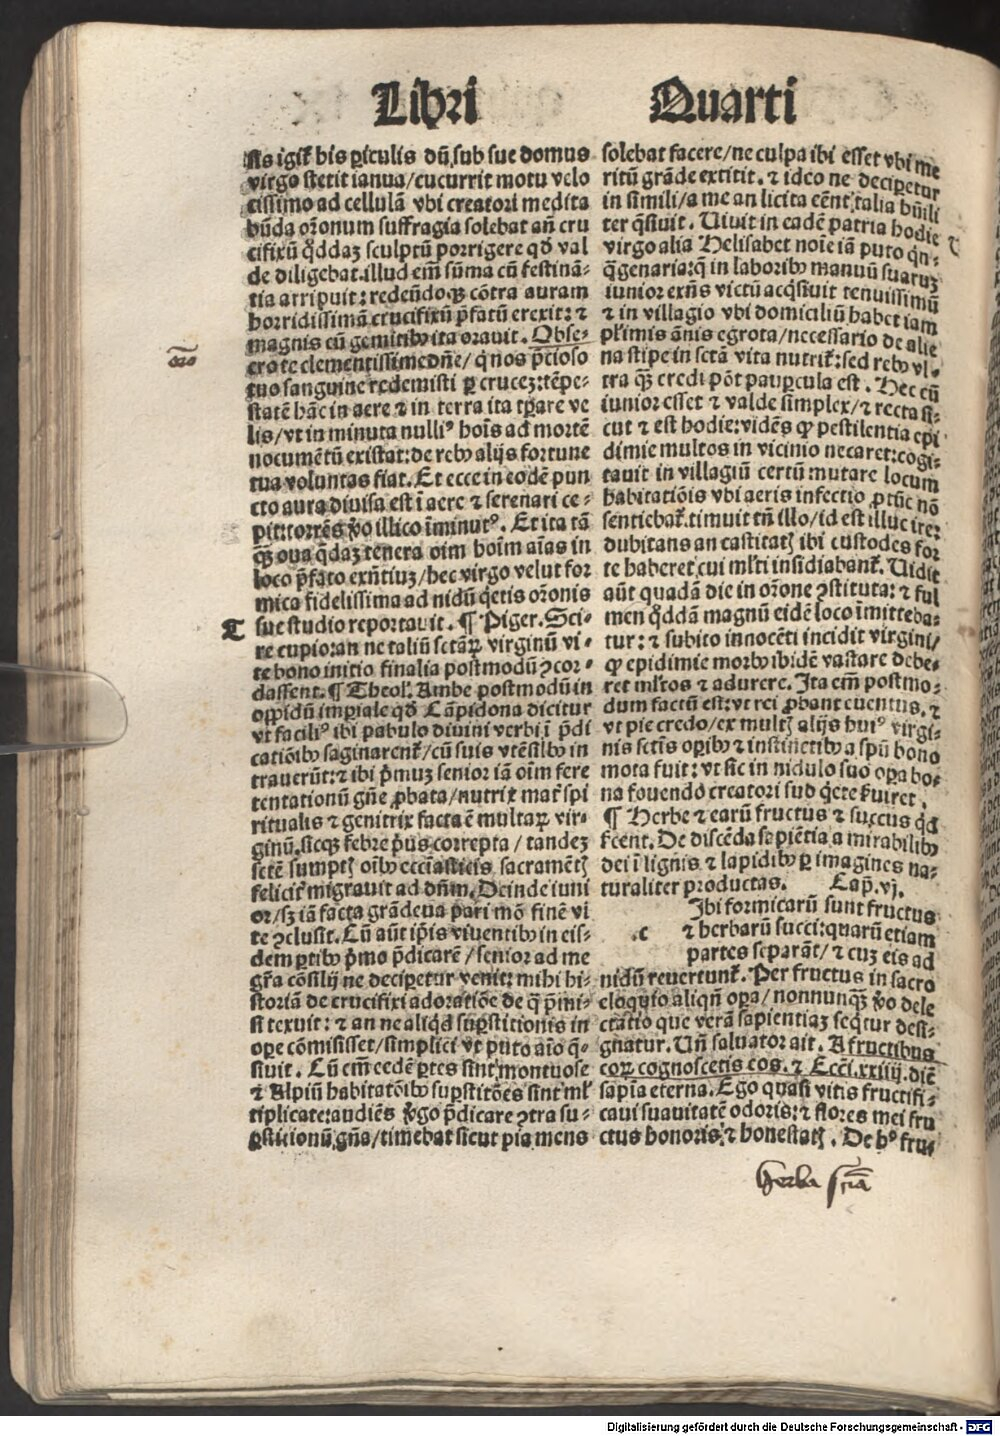 Libri Quarti
As igit᷑ his ꝑiculis dũ, sub sue domus
virgo stetit ianua/cucurrit motu velo
cissimo ad cellulã vbi creatori medita
bũda oꝛonum suffragia solebat añ cru
cifixũ q̃ddaꝫ sculptũ porrigere qd̛ val
de diligebat. illud em̃ sũma cũ festinã⸗
tia arripuit: redeũdoqꝫ cõtra auram
horridissimã crucifixũ p̃fatũ erexit: ⁊
magnis cũ gemitibꝰ ita orauit. Obse⸗
cro te clementissime dñe/ q̇ nos p̃cioso
tuo sanguine redemisti ꝑ cruceꝫ: tẽpe⸗
statẽ hãc in aere ⁊ in terra ita tꝑare ve
lis/vt in minuta nulliꝰ hoĩs ad mortẽ
nocumẽtũ existat: de rebꝰ alijs fortune
tua voluntas fiat. Et ecce in eodẽ pun
cto aura diuisa est ĩ aere ⁊ serenari ce⸗
pit: torrẽs ṽo illico ĩminutꝰ. Et ita tã
qꝫ̃ oua q̃daꝫ tenera oĩm hoĩm aĩas in
loco p̃fato exñtiuꝫ/hec virgo velut for
mica fidelissima ad nidũ q̇etis oꝛonis
T sue studio reportauit. ¶ Piger. Sci⸗
re cupio: an ne taliũ sctãꝝ virginũ vi⸗
te bono initio finalia postmodũ ꝯcor⸗
dassent. ¶ Theol. Ambe postmodũ in
oppidũ imperiale qd̛ Cãpidona dicitur
vt faciliꝰ ibi pabulo diuini verbi, ĩ p̃di
catiõibꝰ saginarent᷑/cũ suis vtẽsilibꝰ in
trauerũt: ⁊ ibi p̃muꝫ senior iã oĩm fere
tentationũ gñe ꝓbata/nutrix mat᷑ spi
ritualis ⁊ genitrix facta ẽ multaꝝ vir⸗
ginũ. sicqꝫ febre p̃us correpta/ tandeꝫ
sctẽ sumptꝭ oĩbꝰ ecclĩasticis sacramẽtꝭ
felicit᷑ migrauit ad dñm. Deinde iuni
or/sꝫ iã facta grãdeua pari mõ finẽ vi
te ꝯclusit. Cũ aũt ip̃is viuentibꝰ in eis⸗
dem ꝑtibꝰ p̃mo p̃dicarẽ/senior ad me
gr̃a cõsilij ne decipetur venit: mihi hi⸗
storiã de crucifixi adoratiõe de q̃ p̃mi⸗
si texuit: ⁊ an ne aliqd̛ suꝑstitionis in
ope cõmisisset/simplici vt puto aĩo q̃⸗
siuit. Cũ em̃ eedẽ ꝑtes sint montuose
⁊ Alpiũ habitatõibꝰ suꝑstitões sint ml̃
tiplicate: audiẽs ṽgo p̃dicare ꝯtra su⸗
ꝑstitionũ gña/timebat sicut pia mens
solebat facere/ne culpa ibi esset vbi me
ritũ grãde extitit. ⁊ ideo ne decipetur
in simili/a me an licita cẽnt talia hũili
ter q̃siuit. Uiuit in eadẽ patria hodie
virgo alia Helisabet noĩe iã puto q̃n⸗
q̃genaria: q̃ in laboribꝰ manuũ suaruꝫ
iunior exñs victũ acq̃siuit tenuissimũ
⁊ in villagio vbi domiciliũ habet iam
pl̃imis ãnis egrota/necessario de alie
na stipe in sctã vita nutrit᷑: sed rebꝰ vl⸗
tra qꝫ̃ credi põt pauꝑcula est. Hec cũ
iunior esset ⁊ valde simplex/⁊ recta si⸗
cut ⁊ est hodie: vidẽs ꝙ pestilentia epi
dimie multos in vicinio necaret: cogi⸗
tauit in villagiũ certũ mutare locum
habitatiõis vbi aeris infectio ꝓ tũc nõ
sentiebat᷑. timuit tñ illo/id est illuc ire:
dubitans an castitatꝭ ibi custodes for
te haberet, cui ml̃ti insidiabant᷑. Uidit
aũt quadã die in oꝛone ꝯstituta: ⁊ ful
men q̃ddã magnũ eidẽ loco ĩmitteba⸗
tur: ⁊ subito innocẽti incidit virgini/
ꝙ epidimie morbꝰ ibidẽ vastare debe⸗
ret ml̃tos ⁊ adurere. Ita em̃ postmo⸗
dum factũ est: vt rei ꝓbant euentus. ⁊
vt pie credo/ex multꝭ alijs huiꝰ virgi⸗
nis sctĩs oꝑibꝰ ⁊ instinctibꝰ a spũ bono
mota fuit: vt sic in nidulo suo oꝑa bo⸗
na fouendo creatori suo q̇ete ẜuiret.
¶ Herbe ⁊ earũ fructus ⁊ succus qd̛
ẜcent. De discẽda sapiẽtia a mirabilibꝰ
dei ĩ lignis ⁊ lapidibꝰ ꝑ imagines na⸗
turaliter productas. Cap̃. vj.
Ibi formicarũ sunt fructus
.c ⁊ herbarũ succi: quarũ etiam
partes separãt/⁊ cuꝫ eis ad
nidũ reuertunt᷑. Per fructus in sacro
eloquio aliqñ oꝑa/nonnunqꝫ̃ ṽo dele
ctatio que verã sapientiaꝫ seq̃tur desi⸗
gnatur. Uñ saluator ait. A fructibus
eoꝝ cognoscetis eos. ⁊ Ecci. xxiiij. diẽ
sapĩa eterna. Ego quasi vitis fructifi⸗
caui suauitatẽ odoris: ⁊ flores mei fru
ctus honoris, ⁊ honestatꝭ. De hᷣ fru⸗
herba
Digitalisierung gefördert durch die Deutsche Forschungsgemeinschaft - DFG